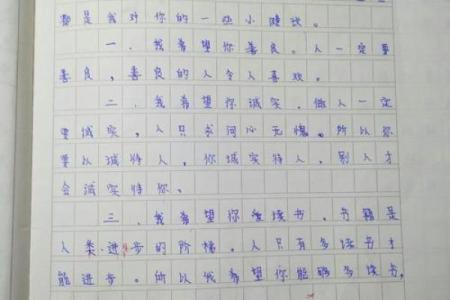 都是我对你的一些小建议。
一、我希望你善良。人一定要
善良，善良的人令人喜欢。
二、我希望你诚实，做人一定
要诚实，人只求问心无愧。所以你
要以诚待人，你诚实待人，别人才
会诚实待你。
三、我希望你爱读书。书籍是
人类进步的阶梯。人只有多读书才
能进步。所以我希望你能够多读书。